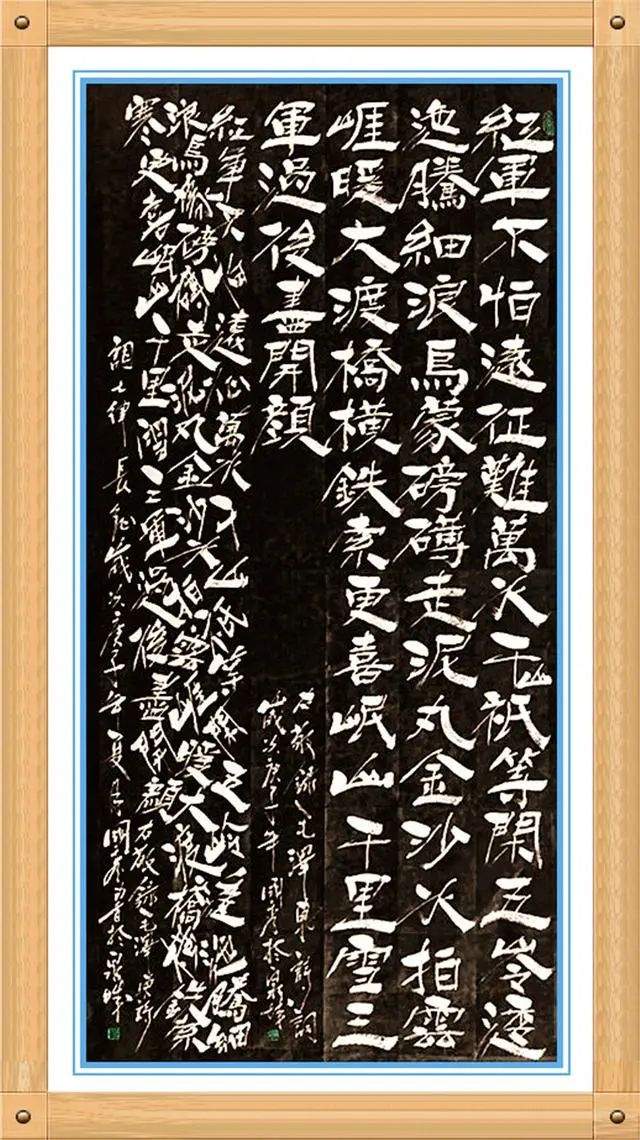 紅軍不怕遠征難萬水千山衹等閑五岺逶
迤騰細浪烏蒙磅礴走泥丸金沙水拍雲
崖暖大渡橋橫鉄索更喜岷山千里雪三
軍過後盡開顏
右敬錄毛澤東詩詞
歲次庚子年國於泉城
紅軍不怕遠征萬水千山衹等閑五岭逶迤騰細
浪烏蒙磅礴走泥丸金沙水拍雲崖暖大渡橋橫鉄索
寒更喜岷山千里雪三軍過後盡開顏右敬錄毛澤東詩
詞七律長征歲次庚子年夏月國書於泉城